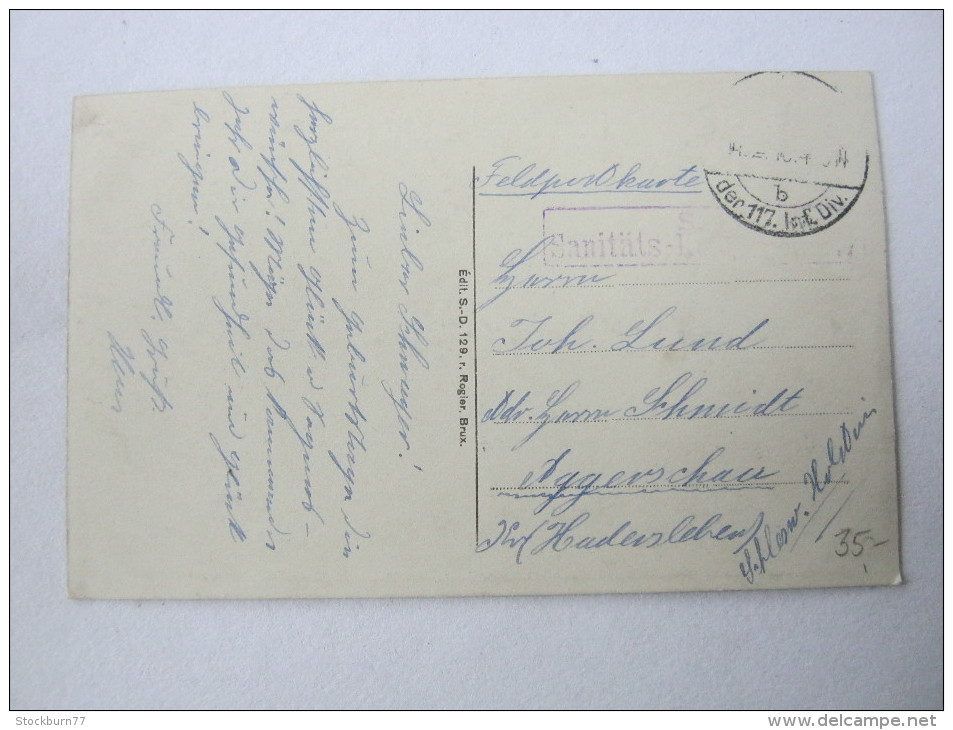 Lieber Schwager!
Zum Geburtstage die
herzlichsten Glück u Segens-
wünsche! Möge das kommende
Jahr dir Gesundheit und Glück
bringen!
Freundl. Gruß.
Édit. S.-D. 129, r. Rogier, Brux.
Feldpostkarte
b
der 117. Inf. Div.
Sanitäts-
Herrn
Joh. Lund
Adr. Herrn Schmidt
Aggerschau
Kr. (Hadersleben)
Schlesw. Holstein
35,-
Stockburn77
delcampe.net